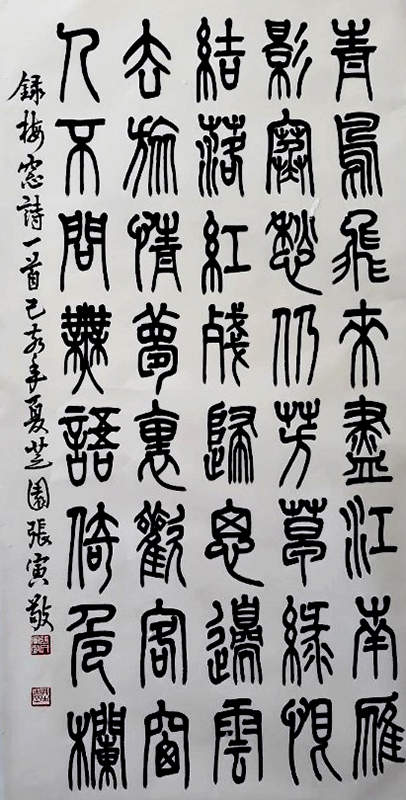 青鳥飛來盡江南雁
影寒愁仍芳草綠恨
結落紅殘歸思邊雲
去旅情夢裏歡客窗
人不問無語倚危欄
錄梅窓詩一首己亥年夏芝園張寅敬